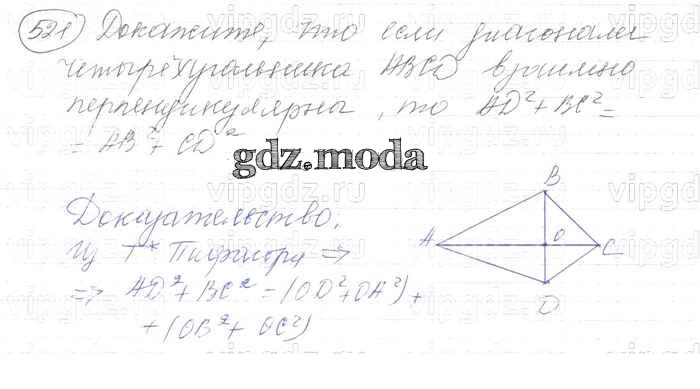 521 Докажите, что если диагонали
четырёхугольника ABCD взаимно
перпендикулярны, то AD²+BC²=
= AB²+CD²
gdz.moda
Доказательство.
Из т. Пифагора ⇒
⇒ AD²+BC²=(OD²+OA²)+
+(OB²+OC²)
B
A
O
C
D
vipgdz.ru